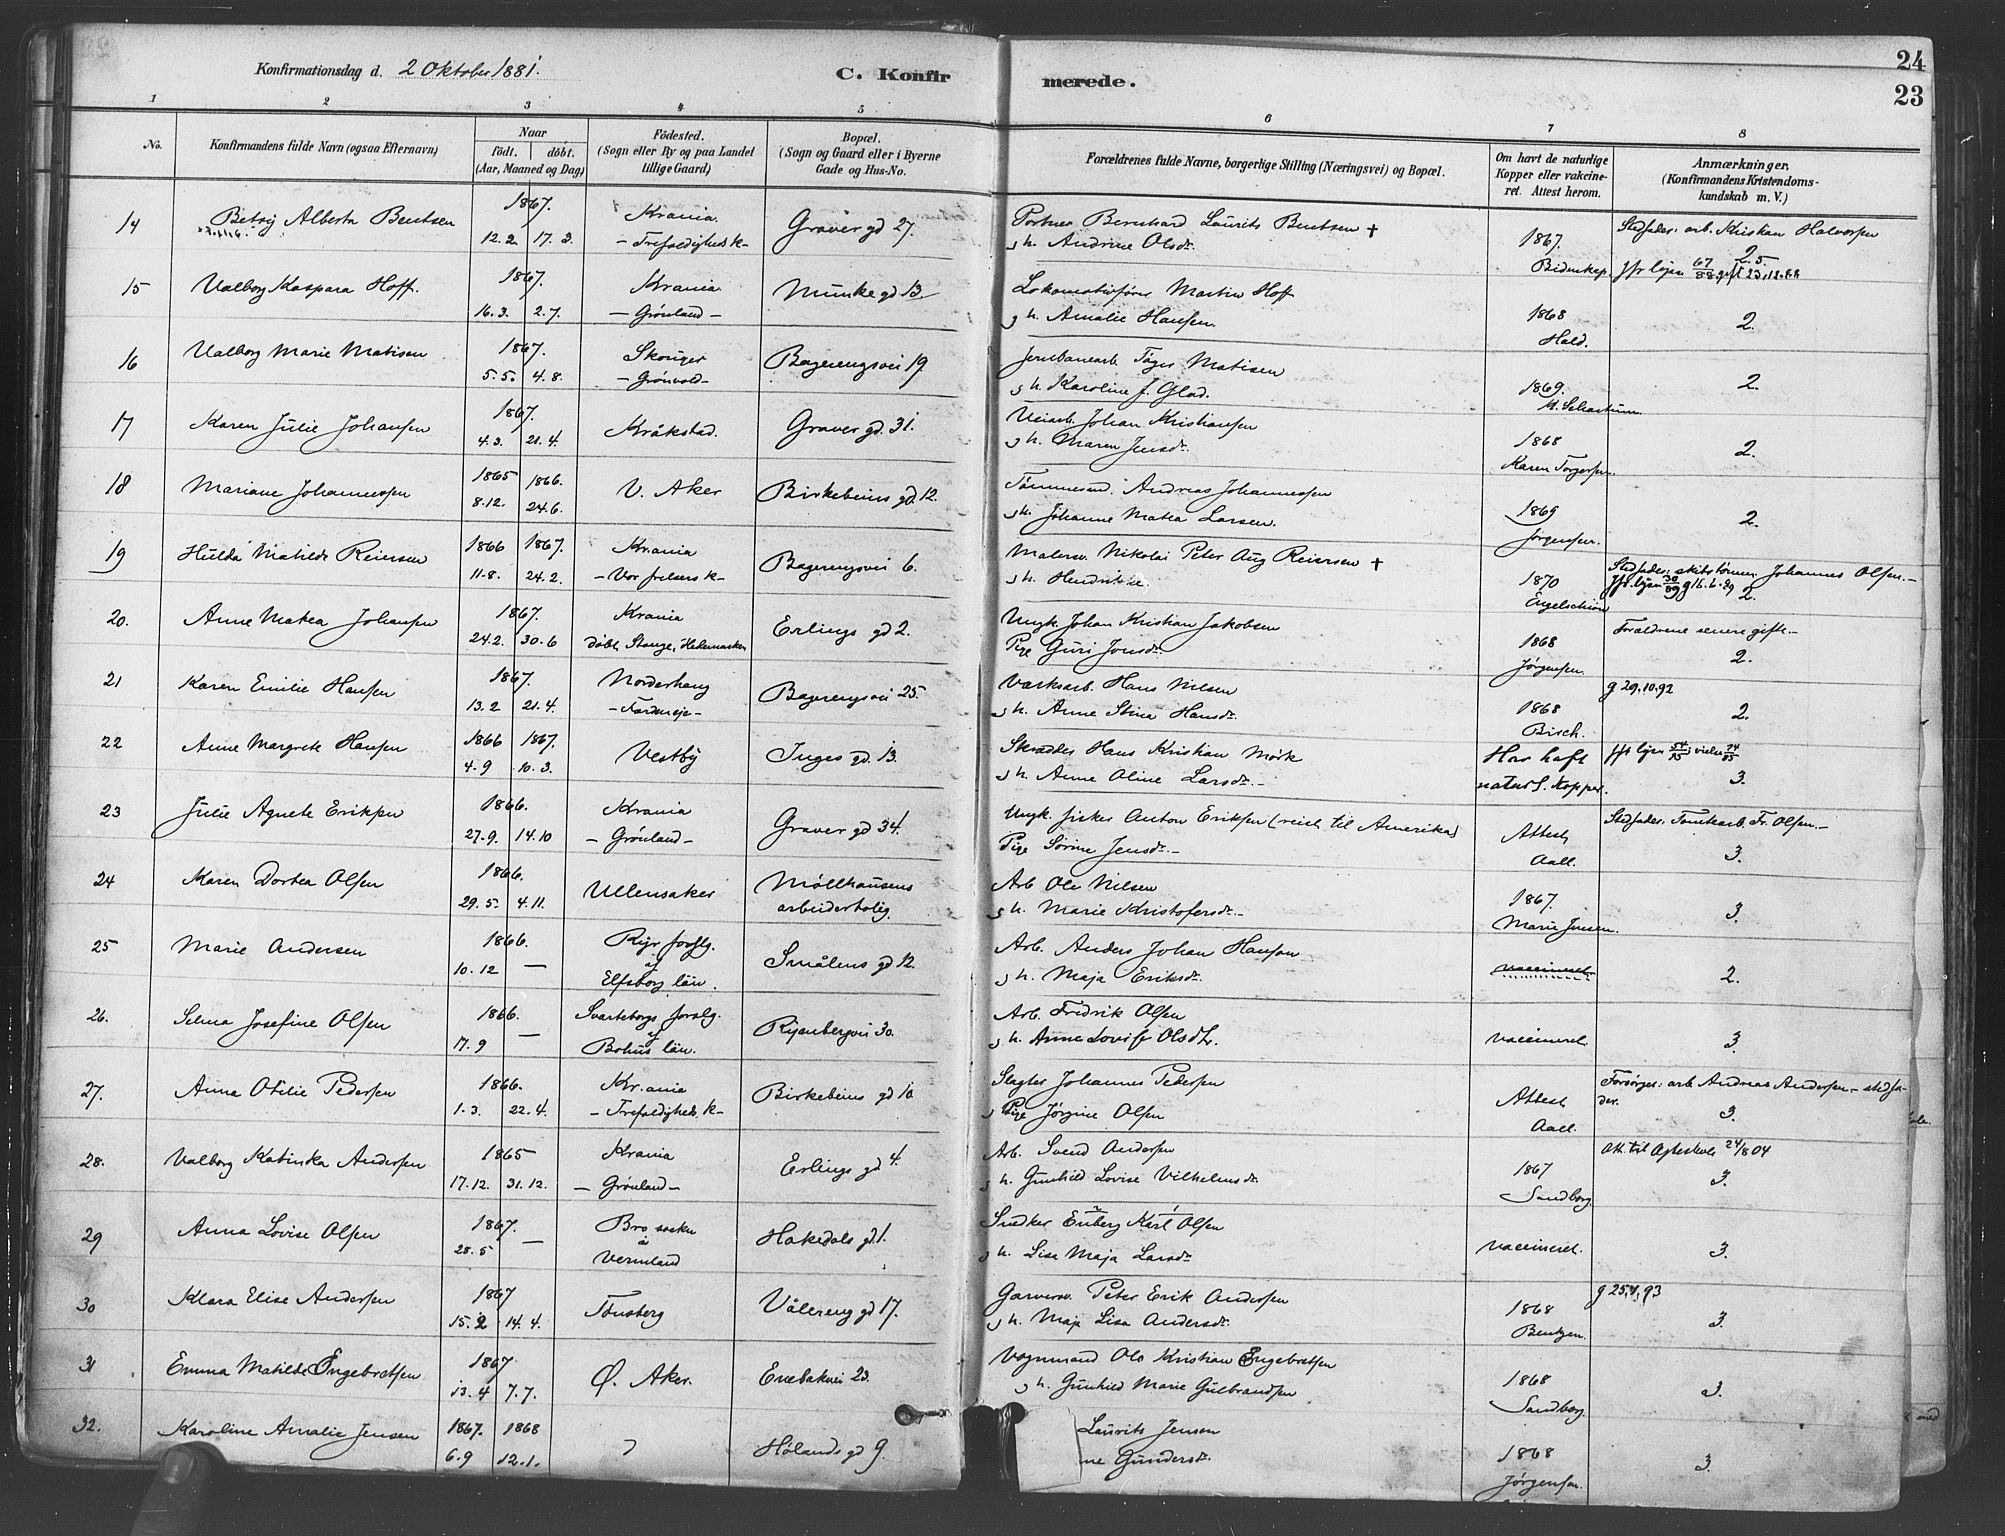 24
23
Konfirmationsdag d. 2 Oktober 1881. C. Konfirmerede.
1 2 3 4 5 6 7 8
No. Konfirmandens fulde Navn (ogsaa Efternavn) Naar födt. döbt. (Aar, Maaned og Dag) Födested. (Sogn eller By og paa Landet tillige Gaard) Bopæl. (Sogn og Gaard eller i Byerne Gade og Hus-No. Forældrenes fulde Navne, borgerlige Stilling (Næringsvei) og Bopæl. Om havt de naturlige Kopper eller vakcineret. Attest herom. Anmærkninger, (Konfirmandens Kristendomskundskab m. V.)
14 Betsy Alberta Bentsen 1867. Krania Graver gd 27. Portner Bernhard Laurits Bentsen + 1867. Stedfader: arb. Kristian Halvorsen
12.2. 17.3. - Trefoldigheds k- g h. Andrine Olsdr. Bidenkap. 2.5 jfr lysn 67/88 gift 23.12.88
15 Valborg Kaspara Hoff. 1867. Krania Munke gd 13 Lokomotivfører Martin Hoff 1868
16.3. 2.7. - Grønland - g h. Amalie Hansen. Hald. 2.
16 Valborg Marie Matisen 1867. Skouger Bagerengsvei 19 Jernbanearb. Tøger Matisen 1869.
5.5. 4.8. - Grønvold - g h. Karoline J. Glad. M. Schartum 2.
17 Karen Julie Johansen 1867. Kråkstad. Graver gd. 31. Veiarb. Johan Kristiansen 1868
4.3. 21.4. g h. Maren Jensdr. Karen Torgersen. 2.
18 Mariane Johannessen 1865 1866. V. Aker Birkebeins gd. 12. Tømmesmd. Andreas Johannessen 1869
8.12. 24.6. g h. Johanne Matea Larsen. Jørgensen. 2.
19 Hulda Matilde Reiersen 1866 1867. Krania Bagerengsvei 6. Malersv. Nikolai Peter Aug Reiersen + 1870 Stedfader: skibstømm. Johannes Olsen.-
11.8. 24.2. - Vor frelsers k- g h. Hendrikke Engelschiøn jfr. lysn 30/89 g 16.6.89 2.
20. Anne Matea Johansen 1867. Krania Erlings gd 2. Ungk. Johan Kristian Jakobsen 1868 Forældrene senere gifte.-
24.2. 30.6 døbt Stange, Hedemarken Pige Guri Jonsdr. Jørgensen. 2.
21 Karen Emilie Hansen 1867. Norderhaug Bagerengsvei 25. Værksarb. Hans Nilsen 1868 g 29.10.92
13.2 21.4. g h. Anne Stina Hansdr. Birch. 2.
22 Anne Margrete Hansen 1866 1867. Vestby Inges gd. 13. Skrædder Hans Kristian Mørk Har haft jfr lysn 54/95 i viede 74/95
4.9 10.3. g h. Anne Oline Larsdr. - naturl. Kopper. 3.
23 Julie Agnete Eriksen 1866. Krania Graver gd 34. Ungk. fisker Anton Eriksen (reist til Amerika) Attest Stedfader: Tomtearb. Fr. Olsen.-
27.9. 14.10 - Grønland - Pige Sørine Jensdr. - Aall. 3.
24 Karen Dortea Olsen 1866. Ullensaker Møllhausens arbeiderbolig Arb Ole Nilsen 1867.
29.5. 4.11. g h. Marie Kristofersdr. - Marie Jensen. 3.
25 Marie Andersen 1866. Ryr forslg. af Elfsborg län. Smålens gd 12. Arb. Anders Johan Hansson vaccineret
10.12 — g h. Maja Eriksdr. 2.
26. Selma Josefine Olsen 1866. Svarteborgs forslg. af Bohus län. Ryenbergvei 30. Arb. Fredrik Olsen
17.9 — g h. Anne Lovise Olsdtr. vaccineret. 3.
27. Anna Otilie Pedersen 1866. Kr.ania Birkebeins gd 10 Slagter Johannes Pedersen Attest Forsørger: arb Andreas Andersen - stedfader.
1.3. 22.4. - Trefoldigheds k- Pige Jørgine Olsen Aall. 3.
28. Valborg Katinka Andersen 1865 Krania Erlings gd 4. Arb. Svend Andersen 1867 Att. til Ægteskab 24/8 04
17.12. 31.12. - Grønland - g h. Gunhild Lovise Vilhelmsdr. Sandborg. 3.
29 Anna Lovise Olsen 1867. Bro socken Vermland Hakedals gd 1. Snedker Enberg Karl Olsen
28.5 — g h. Lisa Maja Larsdr. vaccineret. 3.
30 Klara Elise Andersen 1867 Tønsberg Vålereng gd 17. Garversv. Peter Erik Andersen 1868 g 25.4.93
15.2 14.4. g h. Maja Lisa Andersdr. Bentzen. 3.
31 Emma Matilde Engebretsen 1867 Ø. Aker. Enebakvei 23. Vognmand Ole Kristian Engebretsen 1868
13.4 7.7. g h. Gunhild Marie Gulbrandsen Sandborg. 3.
32. Karoline Amalie Jensen 1867. 1868 Hølands gd 9. Laurits Jensen 1868
6.9 12.1. ne Gundersdr. Jørgensen. 3.